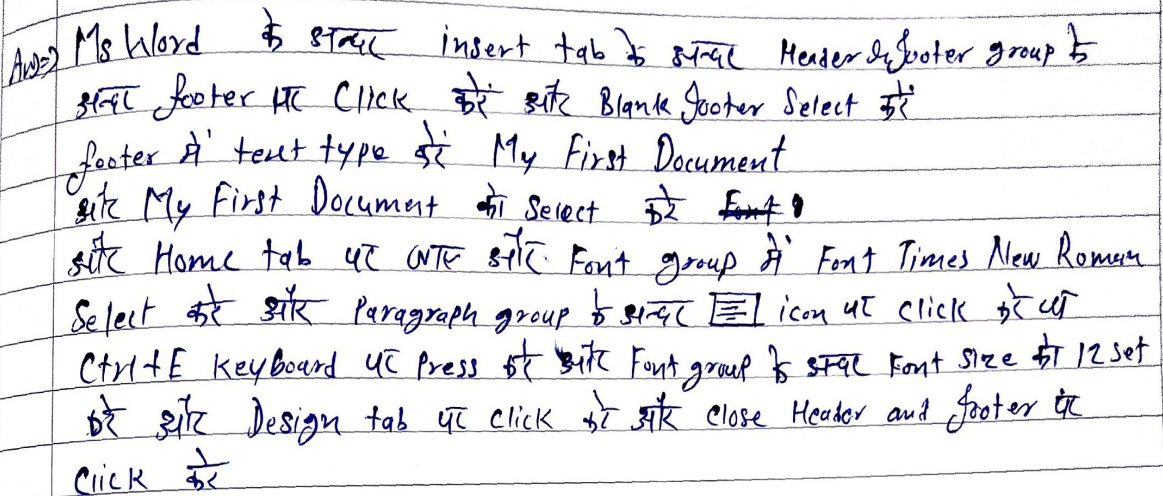 Ans=> Ms Word के अन्दर insert tab के अन्दर Header & footer group के
अन्दर footer पर Click करें और Blank footer Select करें
footer में text type करें My First Document
और My First Document को Select करें
और Home tab पर जाए और Font group में Font Times New Roman
Select करें और Paragraph group के अन्दर icon पर click करें या
Ctrl+E Keyboard पर Press करें और Font group के अन्दर Font Size को 12 set
करें और Design tab पर click करें और Close Header and footer पर
Click करें